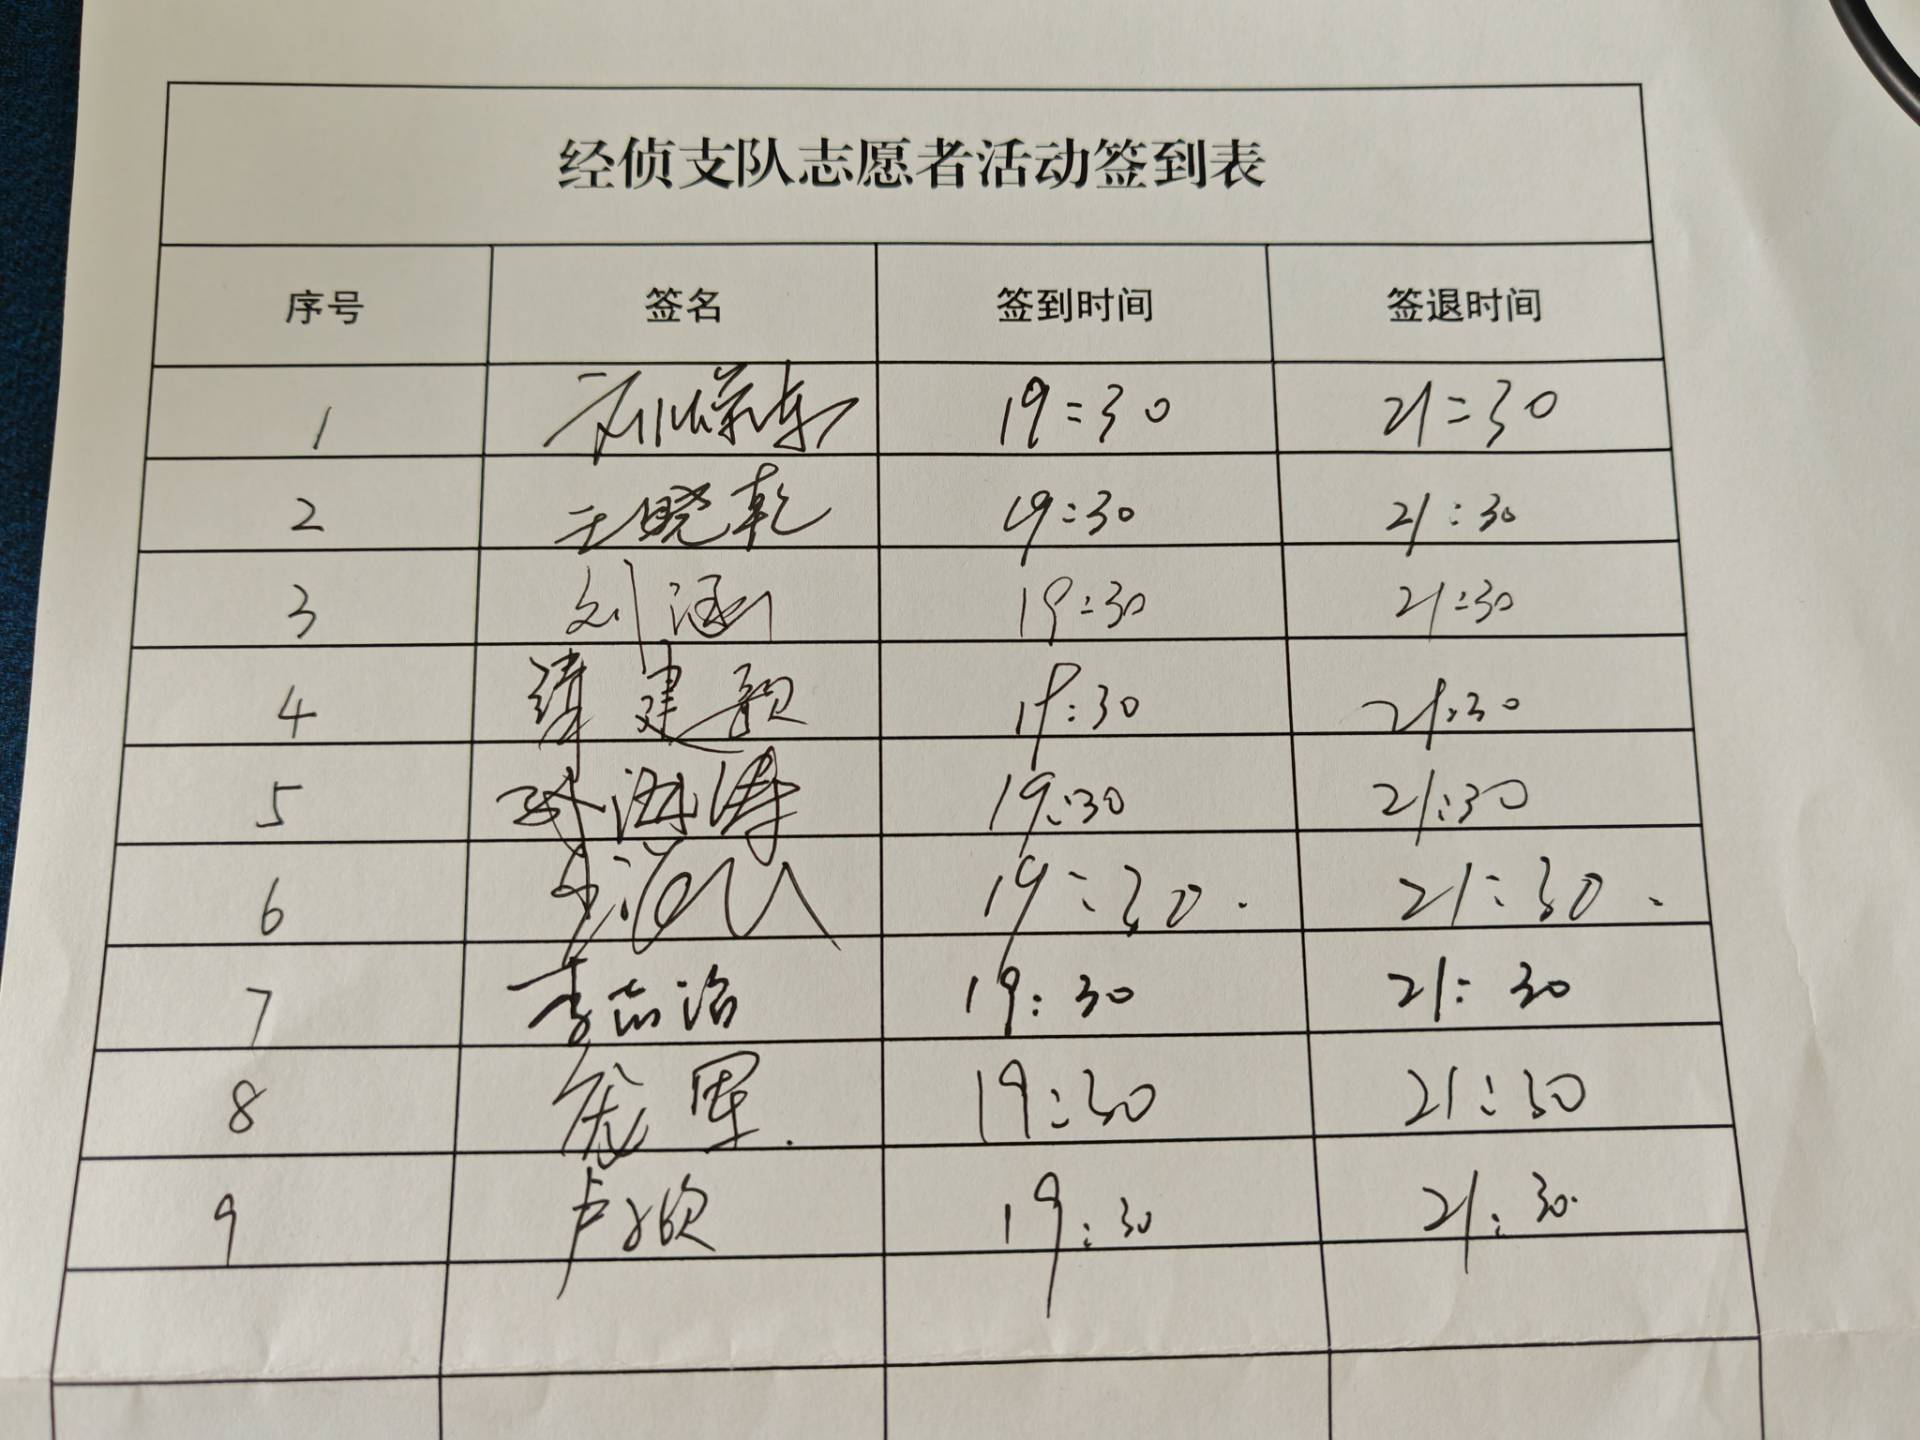 经侦支队志愿者活动签到表
序号 签名 签到时间 签退时间
1 19:30 21:30
2 王晓乾 19:30 21:30
3 刘涵 19:30 21:30
4 建 19:30 21:30
5 孙海涛 19:30 21:30
6 19:30. 21:30.
7 李志治 19:30 21:30
8 庞军. 19:30 21:30
9 卢欣 19:30 21:30.